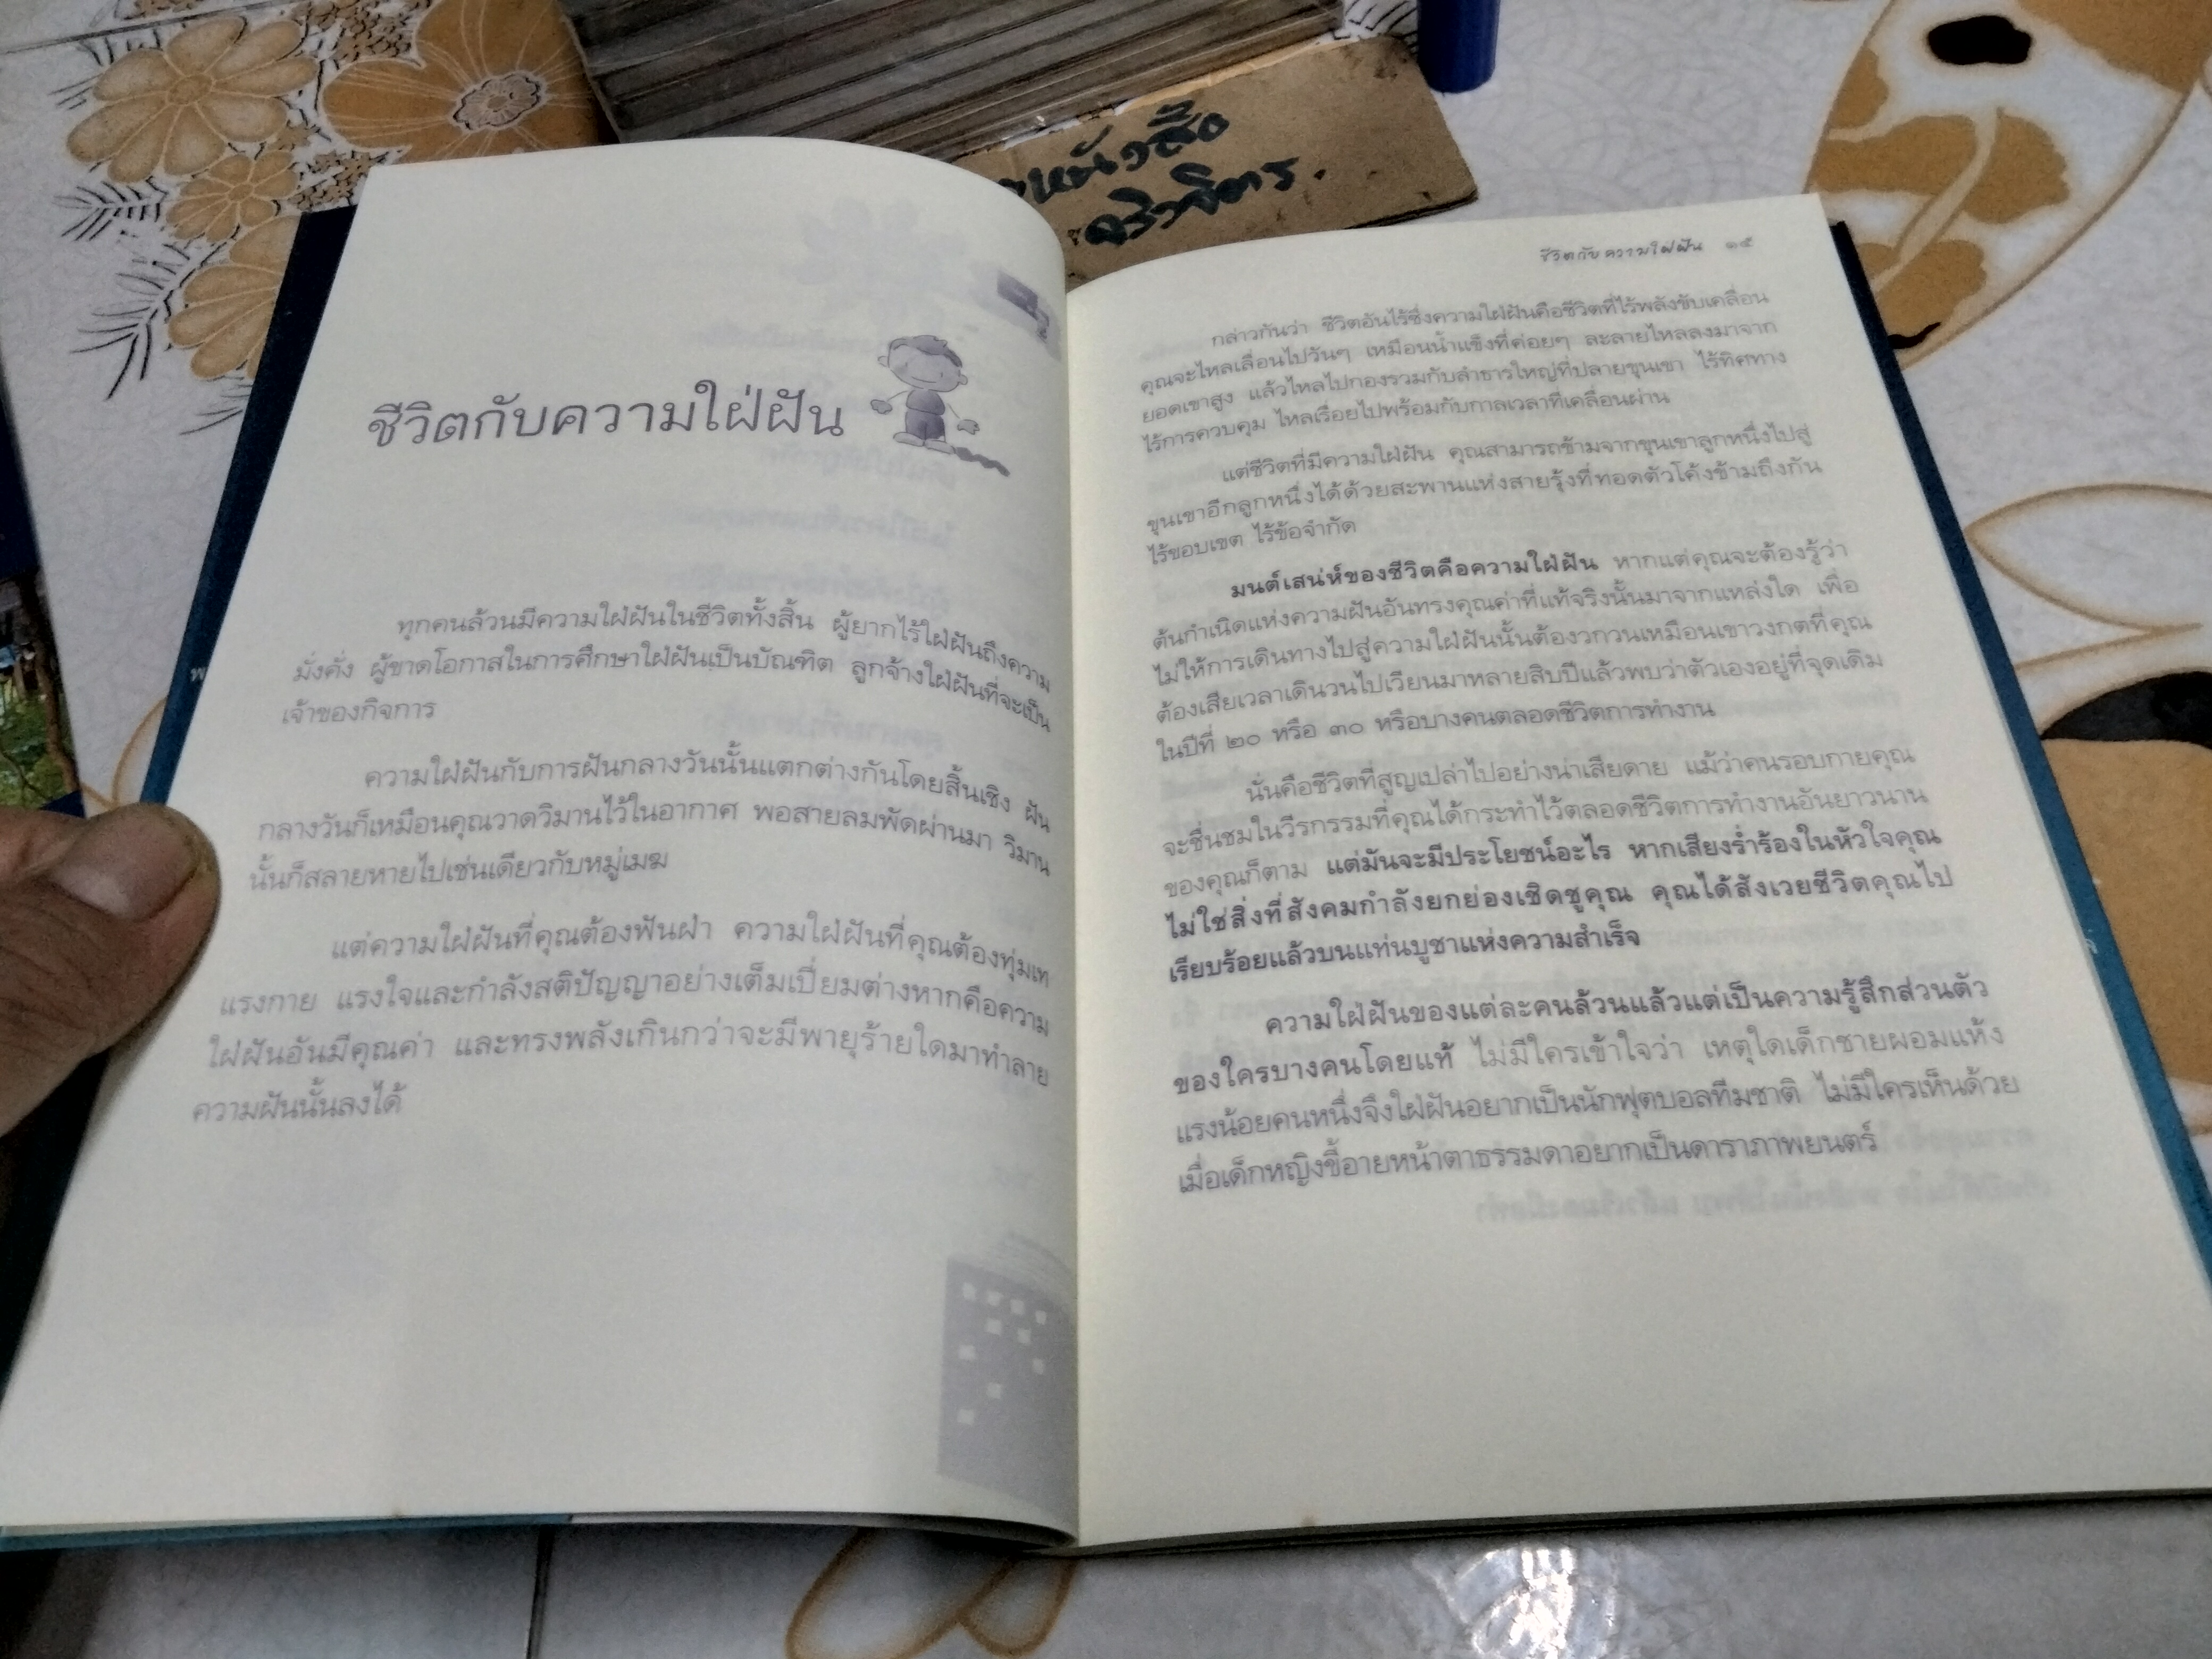 หนังสือ
จริงจิตร.
ชีวิตกับความใฝ่ฝัน
ทุกคนล้วนมีความใฝ่ฝันในชีวิตทั้งสิ้น ผู้ยากไร้ใฝ่ฝันถึงความ
มั่งคั่ง ผู้ขาดโอกาสในการศึกษาใฝ่ฝันเป็นบัณฑิต ลูกจ้างใฝ่ฝันที่จะเป็น
เจ้าของกิจการ
ความใฝ่ฝันกับการฝันกลางวันนั้นแตกต่างกันโดยสิ้นเชิง ฝัน
กลางวันก็เหมือนคุณวาดวิมานไว้ในอากาศ พอสายลมพัดผ่านมา วิมาน
นั้นก็สลายหายไปเช่นเดียวกับหมู่เมฆ
แต่ความใฝ่ฝันที่คุณต้องฟันฝ่า ความใฝ่ฝันที่คุณต้องทุ่มเท
แรงกาย แรงใจและกำลังสติปัญญาอย่างเต็มเปี่ยมต่างหากคือความ
ใฝ่ฝันอันมีคุณค่า และทรงพลังเกินกว่าจะมีพายุร้ายใดมาทำลาย
ความฝันนั้นลงได้
ชีวิตกับความใฝ่ฝัน ๑๕
กล่าวกันว่า ชีวิตอันไร้ซึ่งความใฝ่ฝันคือชีวิตที่ไร้พลังขับเคลื่อน
คุณจะไหลเลื่อนไปวันๆ เหมือนน้ำแข็งที่ค่อยๆ ละลายไหลลงมาจาก
ยอดเขาสูง แล้วไหลไปกองรวมกับลำธารใหญ่ที่ปลายขุนเขา ไร้ทิศทาง
ไร้การควบคุม ไหลเรื่อยไปพร้อมกับกาลเวลาที่เคลื่อนผ่าน
แต่ชีวิตที่มีความใฝ่ฝัน คุณสามารถข้ามจากขุนเขาลูกหนึ่งไปสู่
ขุนเขาอีกลูกหนึ่งได้ด้วยสะพานแห่งสายรุ้งที่ทอดตัวโค้งข้ามถึงกัน
ไร้ขอบเขต ไร้ข้อจำกัด
มนต์เสน่ห์ของชีวิตคือความใฝ่ฝัน หากแต่คุณจะต้องรู้ว่า
ต้นกำเนิดแห่งความฝันอันทรงคุณค่าที่แท้จริงนั้นมาจากแหล่งใด เพื่อ
ไม่ให้การเดินทางไปสู่ความใฝ่ฝันนั้นต้องวกวนเหมือนเขาวงกตที่คุณ
ต้องเสียเวลาเดินวนไปเวียนมาหลายสิบปีแล้วพบว่าตัวเองอยู่ที่จุดเดิม
ในปีที่ ๒๐ หรือ ๓๐ หรือบางคนตลอดชีวิตการทำงาน
นั่นคือชีวิตที่สูญเปล่าไปอย่างน่าเสียดาย แม้ว่าคนรอบกายคุณ
จะชื่นชมในวีรกรรมที่คุณได้กระทำไว้ตลอดชีวิตการทำงานอันยาวนาน
ของคุณก็ตาม แต่มันจะมีประโยชน์อะไร หากเสียงร่ำร้องในหัวใจคุณ
ไม่ใช่สิ่งที่สังคมกำลังยกย่องเชิดชูคุณ คุณได้สังเวยชีวิตคุณไป
เรียบร้อยแล้วบนแท่นบูชาแห่งความสำเร็จ
ความใฝ่ฝันของแต่ละคนล้วนแล้วแต่เป็นความรู้สึกส่วนตัว
ของใครบางคนโดยแท้ ไม่มีใครเข้าใจว่า เหตุใดเด็กชายผอมแห้ง
แรงน้อยคนหนึ่งจึงใฝ่ฝันอยากเป็นนักฟุตบอลทีมชาติ ไม่มีใครเห็นด้วย
เมื่อเด็กหญิงขี้อายหน้าตาธรรมดาอยากเป็นดาราภาพยนตร์